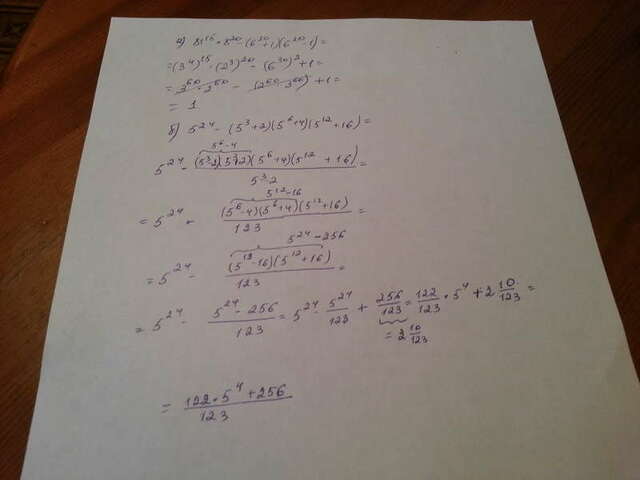 а) 81¹⁵ · 8²⁰ - (6³⁰+1)(6³⁰-1)=
=(3⁴)¹⁵ · (2³)²⁰ - (6³⁰)² + 1 =
= 3⁶⁰ · 2⁶⁰ - (2⁶⁰ · 3⁶⁰) + 1 =
= 1
б) 5²⁴ - (5³+2)(5⁶+4)(5¹²+16)=
5⁶-4
5²⁴ - (5³-2)(5³+2)(5⁶+4)(5¹²+16) =
5³-2
5¹²-16
= 5²⁴ - (5⁶-4)(5⁶+4)(5¹²+16) =
123
5²⁴-256
= 5²⁴ - (5¹²-16)(5¹²+16) =
123
= 5²⁴ - 5²⁴-256/123 = 5²⁴ - 5²⁴/123 + 256/123 = 122/123 · 5⁴ + 2 10/123 =
= 2 10/123
= 122 · 5⁴ + 256
123